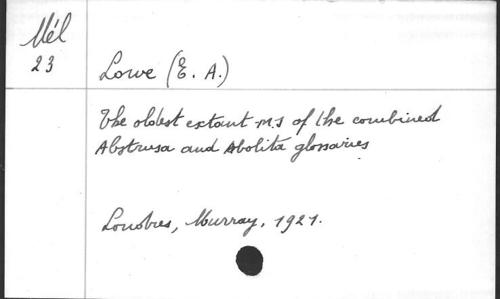 Mél
23
Lowe (E. A.)
The oldest extant ms of the combined
Abstrusa and Abolita glossaries
Londres, Murray, 1921.